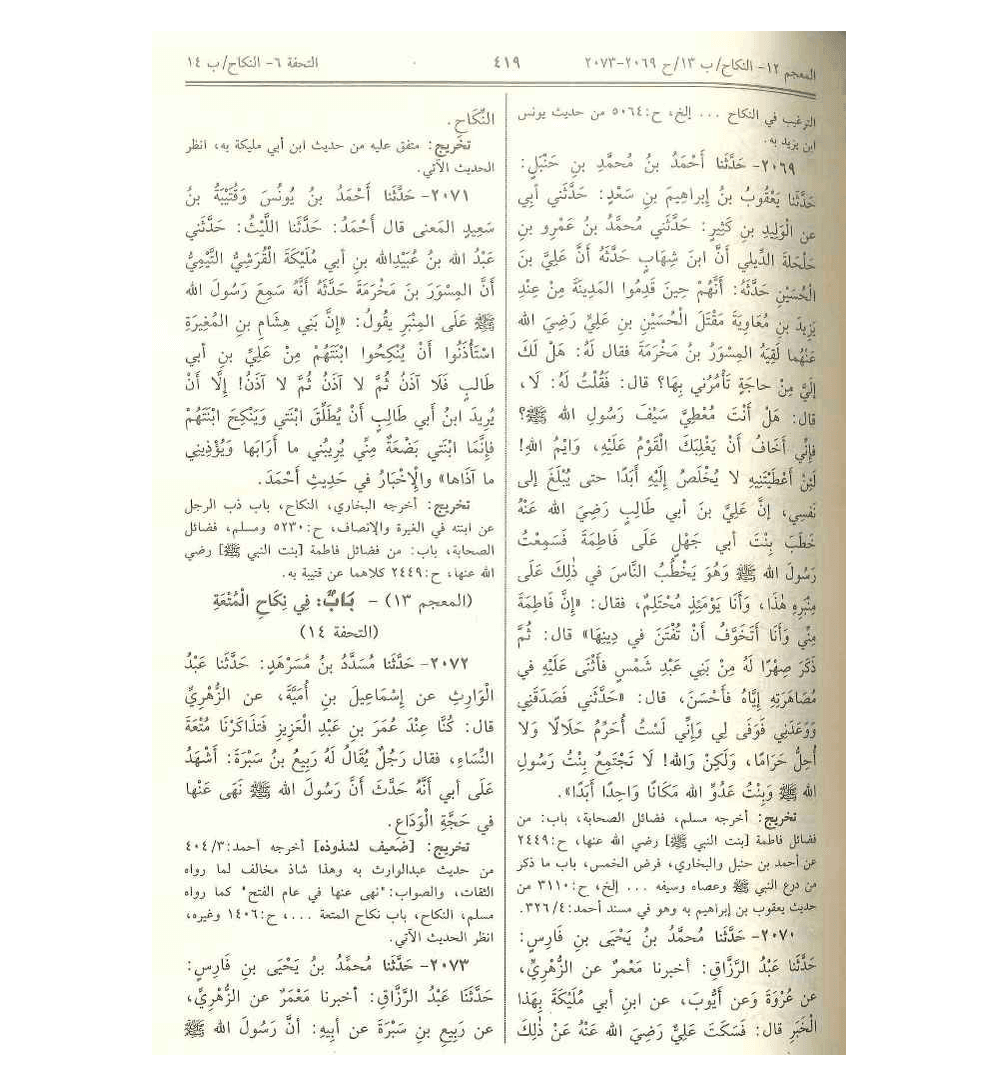 المعجم ١٢- النكاح/ ب ١٣/ح ٢٠٦٩-٢٠٧٣
٤١٩
التحفة ٦- النكاح/ ب ١٤
الترغيب في النكاح ... إلخ، ح:٥٠٦٤ من حديث يونس
ابن يزيد به.
٢٠٦٩- حَدَّثَنا أَحْمَدُ بنُ مُحمَّدِ بنِ حَنْبَلٍ:
حَدَّثَنا يَعْقُوبُ بنُ إبراهِيمَ بنِ سَعْدٍ: حَدَّثَني أبي
عن الْوَلِيدِ بنِ كَثِيرٍ: حَدَّثَني مُحمَّدُ بنُ عَمْرِو بنِ
حَلْحَلَةَ الدِّيلي أنَّ ابنَ شِهَابٍ حَدَّثَهُ أنَّ عَلِيَّ بنَ
الْحُسَيْنِ حَدَّثَهُ: أنَّهُمْ حِينَ قَدِمُوا المَدِينَةَ مِنْ عِنْدِ
يَزِيدَ بنِ مُعَاوِيَةَ مَقْتَلَ الْحُسَيْنِ بنِ عَلِيٍّ رَضِيَ الله
عَنْهُما لَقِيَهُ المِسْوَرُ بنُ مَخْرَمَةَ فقال لَهُ: هَلْ لَكَ
إلَيَّ مِنْ حاجَةٍ تَأْمُرُني بِهَا؟ قال: فَقُلْتُ لَهُ: لَا،
قال: هَلْ أَنْتَ مُعْطِيَّ سَيْفَ رَسُولِ الله ﷺ؟
فإنِّي أخَافُ أنْ يَغْلِبَكَ الْقَوْمُ عَلَيْهِ، وَايْمُ اللهِ!
لَئِنْ أعْطَيْتَنِيهِ لا يُخْلَصُ إلَيْهِ أبَدًا حتى يُبْلَغَ إلى
نَفسِي، إنَّ عَلِيَّ بنَ أبي طَالِبٍ رَضِيَ الله عَنْهُ
خَطَبَ بِنْتَ أبي جَهْلٍ عَلَى فَاطِمَةَ فَسَمِعْتُ
رَسُولَ الله ﷺ وَهُوَ يَخْطُبُ النَّاسَ في ذٰلِكَ عَلَى
مِنْبَرِهِ هٰذَا، وَأنَا يَوْمَئِذٍ مُحْتَلِمٌ، فقال: «إنَّ فَاطِمَةَ
مِنِّي وَأنَا أتَخَوَّفُ أنْ تُفْتَنَ في دِينِهَا» قال: ثُمَّ
ذَكَرَ صِهْرًا لَهُ مِنْ بَنِي عَبْدِ شَمْسٍ فأثْنَى عَلَيْهِ في
مُصَاهَرَتِهِ إيَّاهُ فأحْسَنَ، قال: «حَدَّثَني فَصَدَقَنِي
وَوَعَدَنِي فَوَفَى لِي وَإنِّي لَسْتُ أُحَرِّمُ حَلَالًا وَلا
أُحِلُّ حَرَامًا، وَلَكِنْ وَالله! لَا تَجْتَمِعُ بِنْتُ رَسُولِ
الله ﷺ وَبِنْتُ عَدُوِّ الله مَكَانًا وَاحِدًا أبَدًا».
تخريج: أخرجه مسلم، فضائل الصحابة، باب: من
فضائل فاطمة [بنت النبي ﷺ] رضي الله عنها، ح:٢٤٤٩
عن أحمد بن حنبل والبخاري، فرض الخمس، باب ما ذكر
من درع النبي ﷺ وعصاه وسيفه ... إلخ، ح:٣١١٠ من
حديث يعقوب بن إبراهيم به وهو في مسند أحمد:٣٢٦/٤.
٢٠٧٠- حَدَّثَنا مُحمَّدُ بنُ يَحْيَى بنِ فَارِسٍ:
حَدَّثَنا عَبْدُ الرَّزَّاقِ: أخبرنا مَعْمَرٌ عن الزُّهْرِيِّ،
عن عُرْوَةَ وَعن أيُّوبَ، عن ابنِ أبي مُلَيْكَةَ بِهَذا
الْخَبَرِ قال: فَسَكَتَ عَلِيٌّ رَضِيَ الله عَنْهُ عَنْ ذٰلِكَ
النِّكَاحِ.
تخريج: متفق عليه من حديث ابن أبي مليكة به، انظر
الحديث الآتي.
٢٠٧١- حَدَّثَنا أَحْمَدُ بنُ يُونُسَ وَقُتَيْبَةُ بنُ
سَعِيدٍ المَعنى قال أَحْمَدُ: حَدَّثَنا اللَّيْثُ: حَدَّثَني
عَبْدُ الله بنُ عُبَيْدِالله بنِ أبي مُلَيْكَةَ الْقُرَشِيُّ التَّيْمِيُّ
أنَّ المِسْوَرَ بنَ مَخْرَمَةَ حَدَّثَهُ أنَّهُ سَمِعَ رَسُولَ الله
ﷺ عَلَى المِنْبَرِ يقُولُ: «إنَّ بَنِي هِشَامِ بنِ المُغِيرَةِ
اسْتَأْذَنُوا أنْ يُنْكِحُوا ابْنَتَهُمْ مِنْ عَلِيِّ بنِ أبي
طَالبٍ فَلَا آذَنُ ثُمَّ لا آذَنُ ثُمَّ لا آذَنُ! إلَّا أنْ
يُرِيدَ ابنُ أبي طَالِبٍ أنْ يُطَلِّقَ ابْنَتي وَيَنْكِحَ ابْنَتَهُمْ
فإنَّمَا ابْنَتي بَضْعَةٌ مِنِّي يُرِيبُني ما أَرَابَها وَيُؤْذِينِي
ما آذَاها» والْإخْبَارُ في حَدِيثِ أحْمَدَ.
تخريج: أخرجه البخاري، النكاح، باب ذب الرجل
عن ابنته في الغيرة والإنصاف، ح:٥٢٣٠ ومسلم، فضائل
الصحابة، باب: من فضائل فاطمة [بنت النبي ﷺ] رضي
الله عنها، ح:٢٤٤٩ كلاهما عن قتيبة به.
(المعجم ١٣) - بَابٌ: فِي نِكَاحِ الْمُتْعَةِ
(التحفة ١٤)
٢٠٧٢- حَدَّثَنا مُسَدَّدُ بنُ مُسَرْهَدٍ: حَدَّثَنا عَبْدُ
الْوَارِثِ عن إسْمَاعِيلَ بنِ أُمَيَّةَ، عن الزُّهْرِيِّ
قال: كُنَّا عِنْدَ عُمَرَ بنِ عَبْدِ الْعَزِيزِ فَتَذَاكَرْنَا مُتْعَةَ
النِّسَاءِ، فقال رَجُلٌ يُقَالُ لَهُ رَبِيعُ بنُ سَبْرَةَ: أَشْهَدُ
عَلَى أبي أنَّهُ حَدَّثَ أنَّ رَسُولَ الله ﷺ نَهَى عَنْهَا
في حَجَّةِ الْوَدَاعِ.
تخريج: [ضعيف لشذوذه] أخرجه أحمد:٤٠٤/٣
من حديث عبدالوارث به وهذا شاذ مخالف لما رواه
الثقات، والصواب: "نهى عنها في عام الفتح" كما رواه
مسلم، النكاح، باب نكاح المتعة ...، ح:١٤٠٦ وغيره،
انظر الحديث الآتي.
٢٠٧٣- حَدَّثَنا مُحمَّدُ بنُ يَحْيَى بنِ فَارِسٍ:
حَدَّثَنَا عَبْدُ الرَّزَّاقِ: أخبرنا مَعْمَرٌ عن الزُّهْرِيِّ،
عن رَبِيعِ بنِ سَبْرَةَ عن أبِيهِ: أنَّ رَسُولَ الله ﷺ